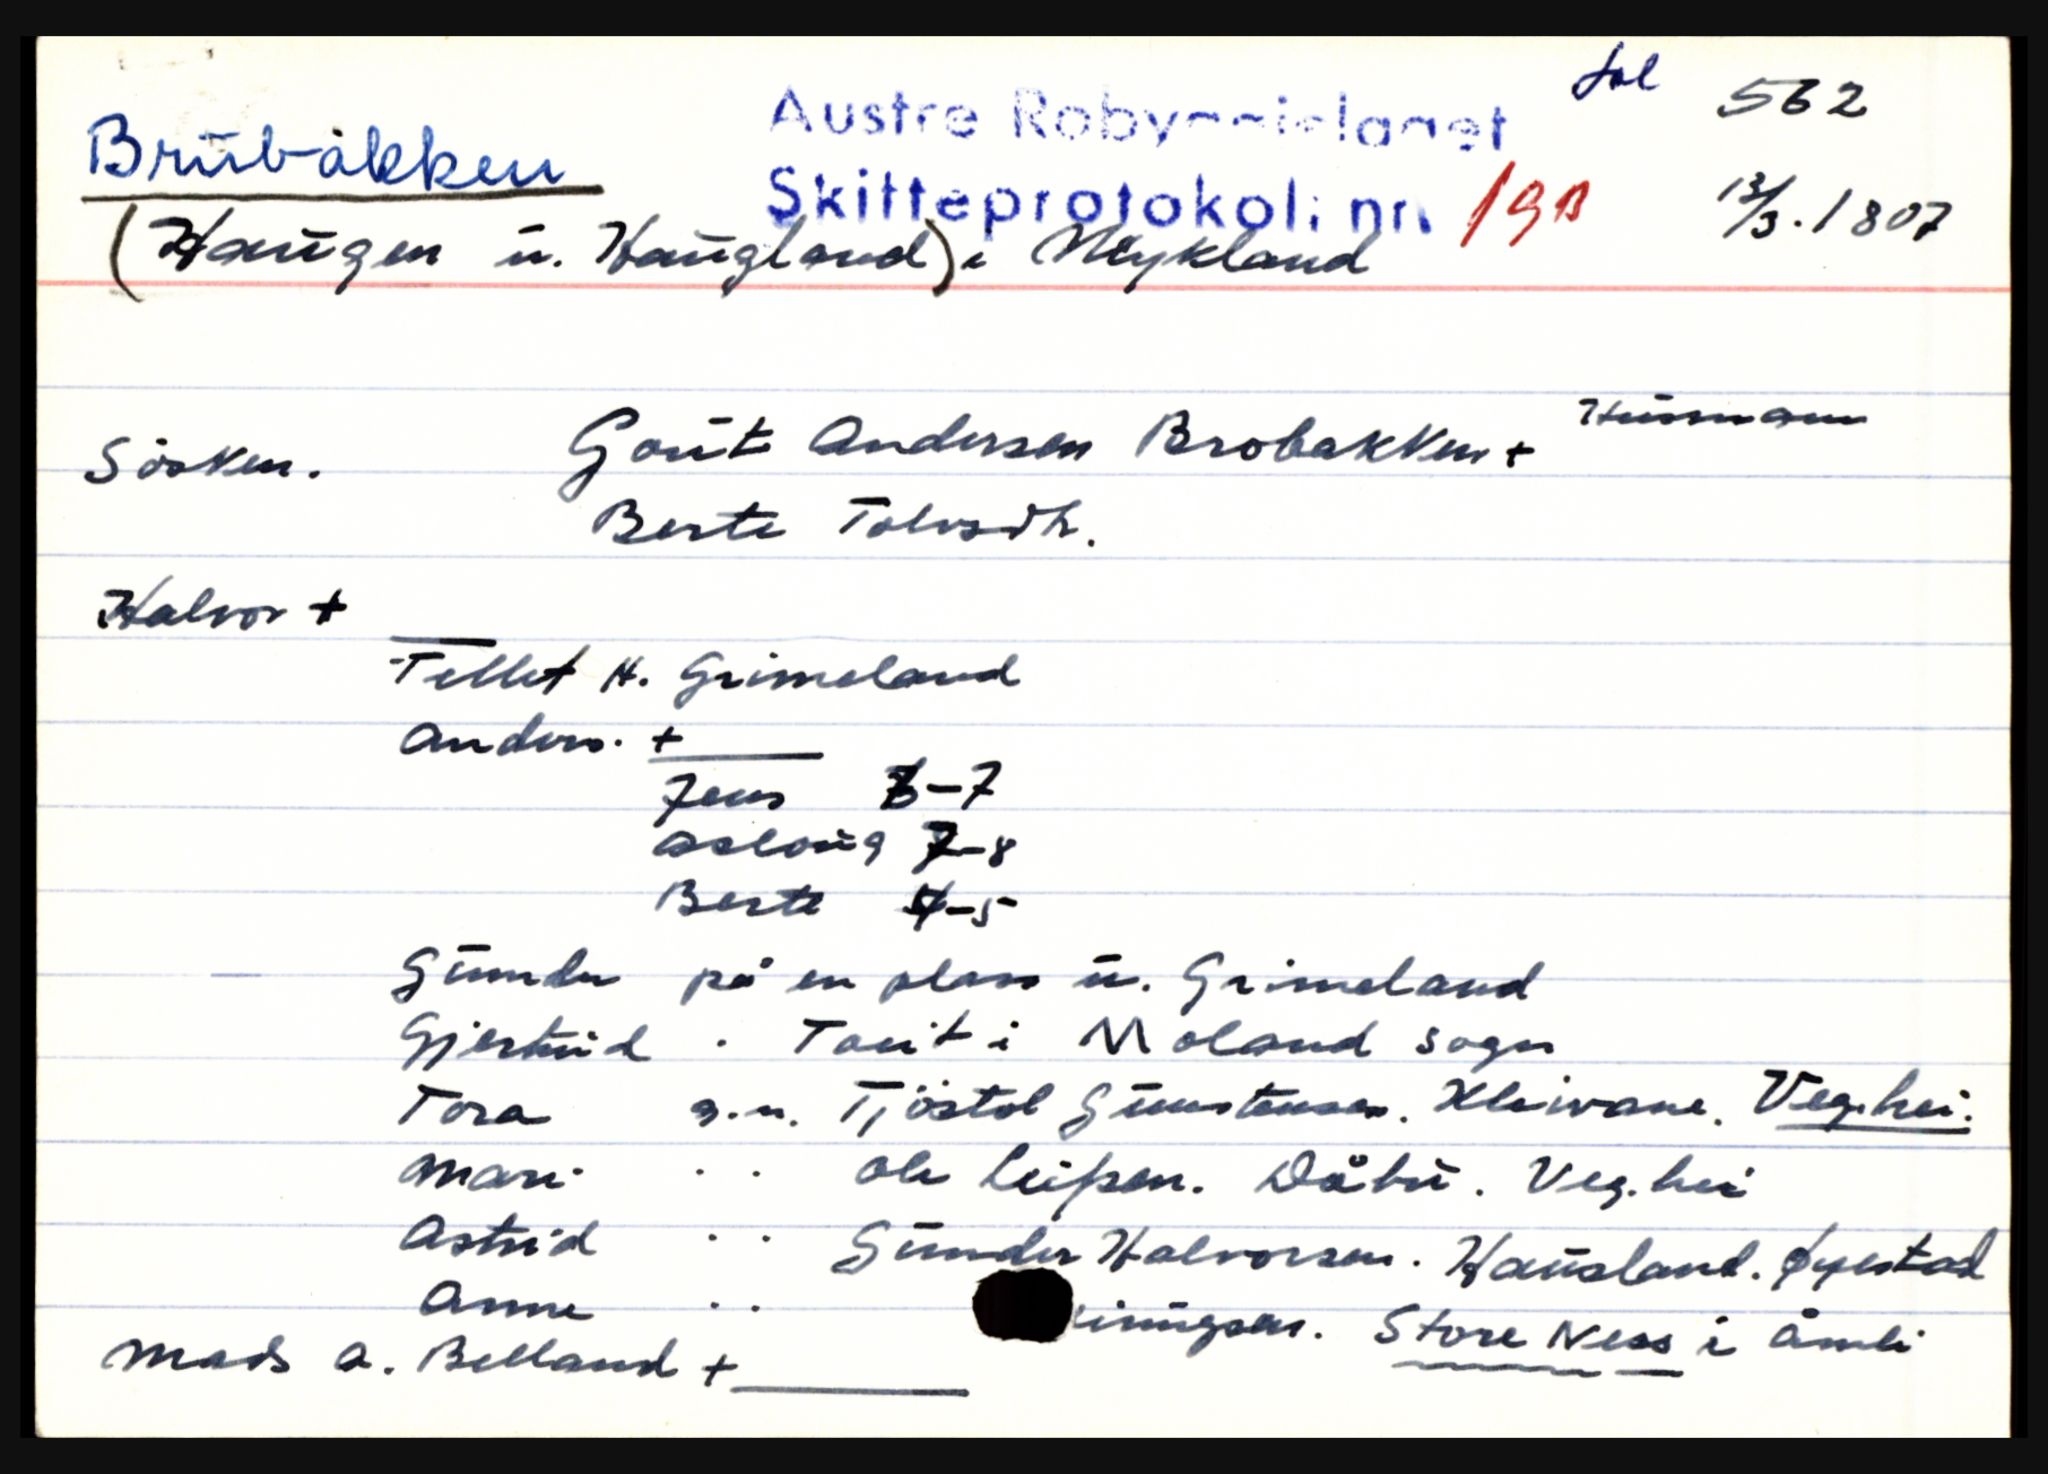 fol 562
Brubakken
Austre Robyggjelaget
Skifteprotokoll nr. 19B
13/3. 1807
(Haugen u. Haugland) i Mykland
Søsken. Gout Andersen Brobakken + Husmann
Berte Tolvsdtr.
Halvor +
Tellef H. Grimeland
Anders. +
Jens 6-7
Asloug 7-8
Berte 4-5
Gunder på en plass u. Grimeland
Gjertrud . Tveit i Moland sogn
Tora g.m. Tjöstol Gunstensen. Kleivane. Veg.hei.
Mari . . Ole Leifsen. Dåbu. Veg.hei
Astrid . . Gunder Halvorsen. Hausland. Øyestad
Anne . . Store Ness i Åmli
Mads A. Belland +